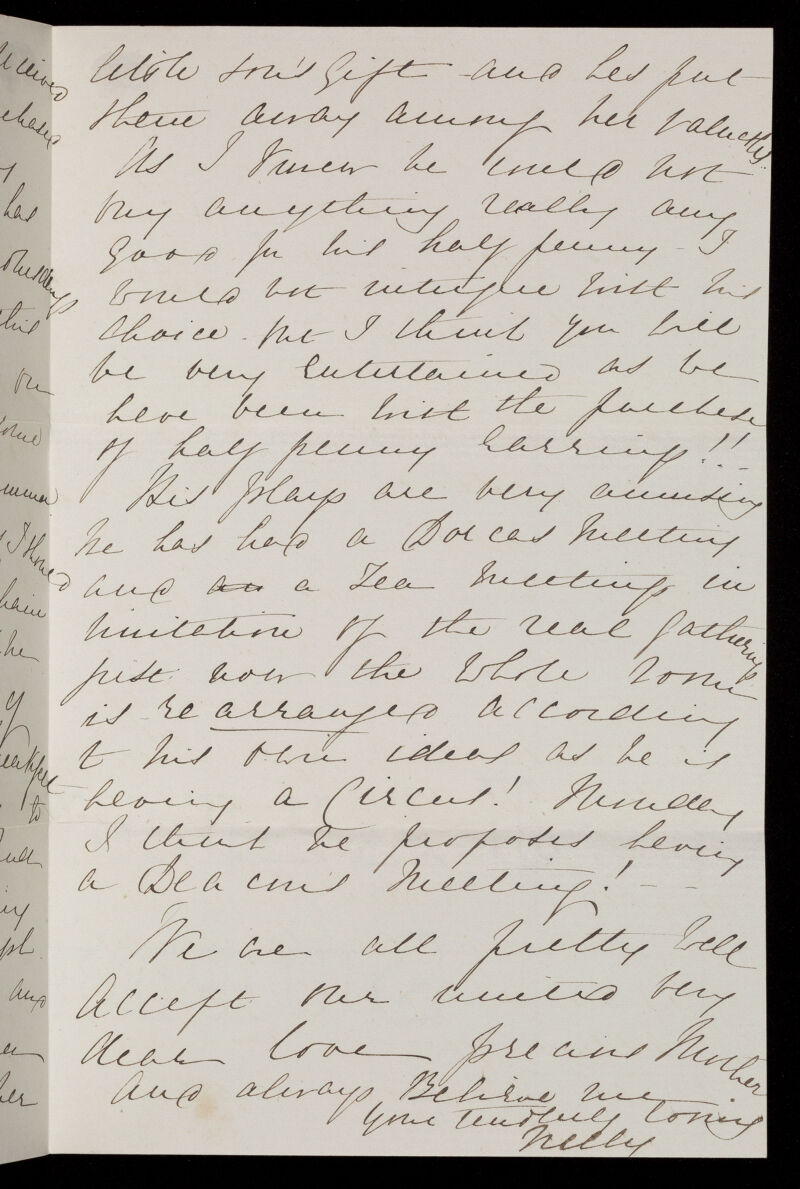 little son's gift - and has put
them away among her valuables.
As I knew he could not
buy anything really any
good for his half penny - I
would not intrigue with his
choice. but I think you will
be very entertained as we
have been with the purchase
of half penny Earring!!
His plays are very amusing
he has had a Dorcas Meeting
and an a Tea Meeting in
imitation of the real gatherings
just now the whole room
is re arranged according
to his own ideas as he is
having a Circus! Monday
I think he proposes having
a Deacons Meeting! - -
We are all pretty well
Accept our united very
dear love precious Mother
and always Believe me
your tenderly loving
Nelly